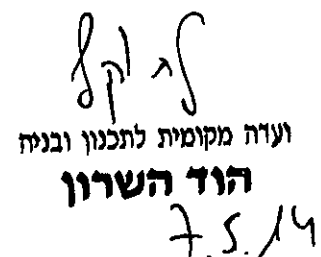 ועדה מקומית לתכנון ובניה
הוד השרון
7.5.14